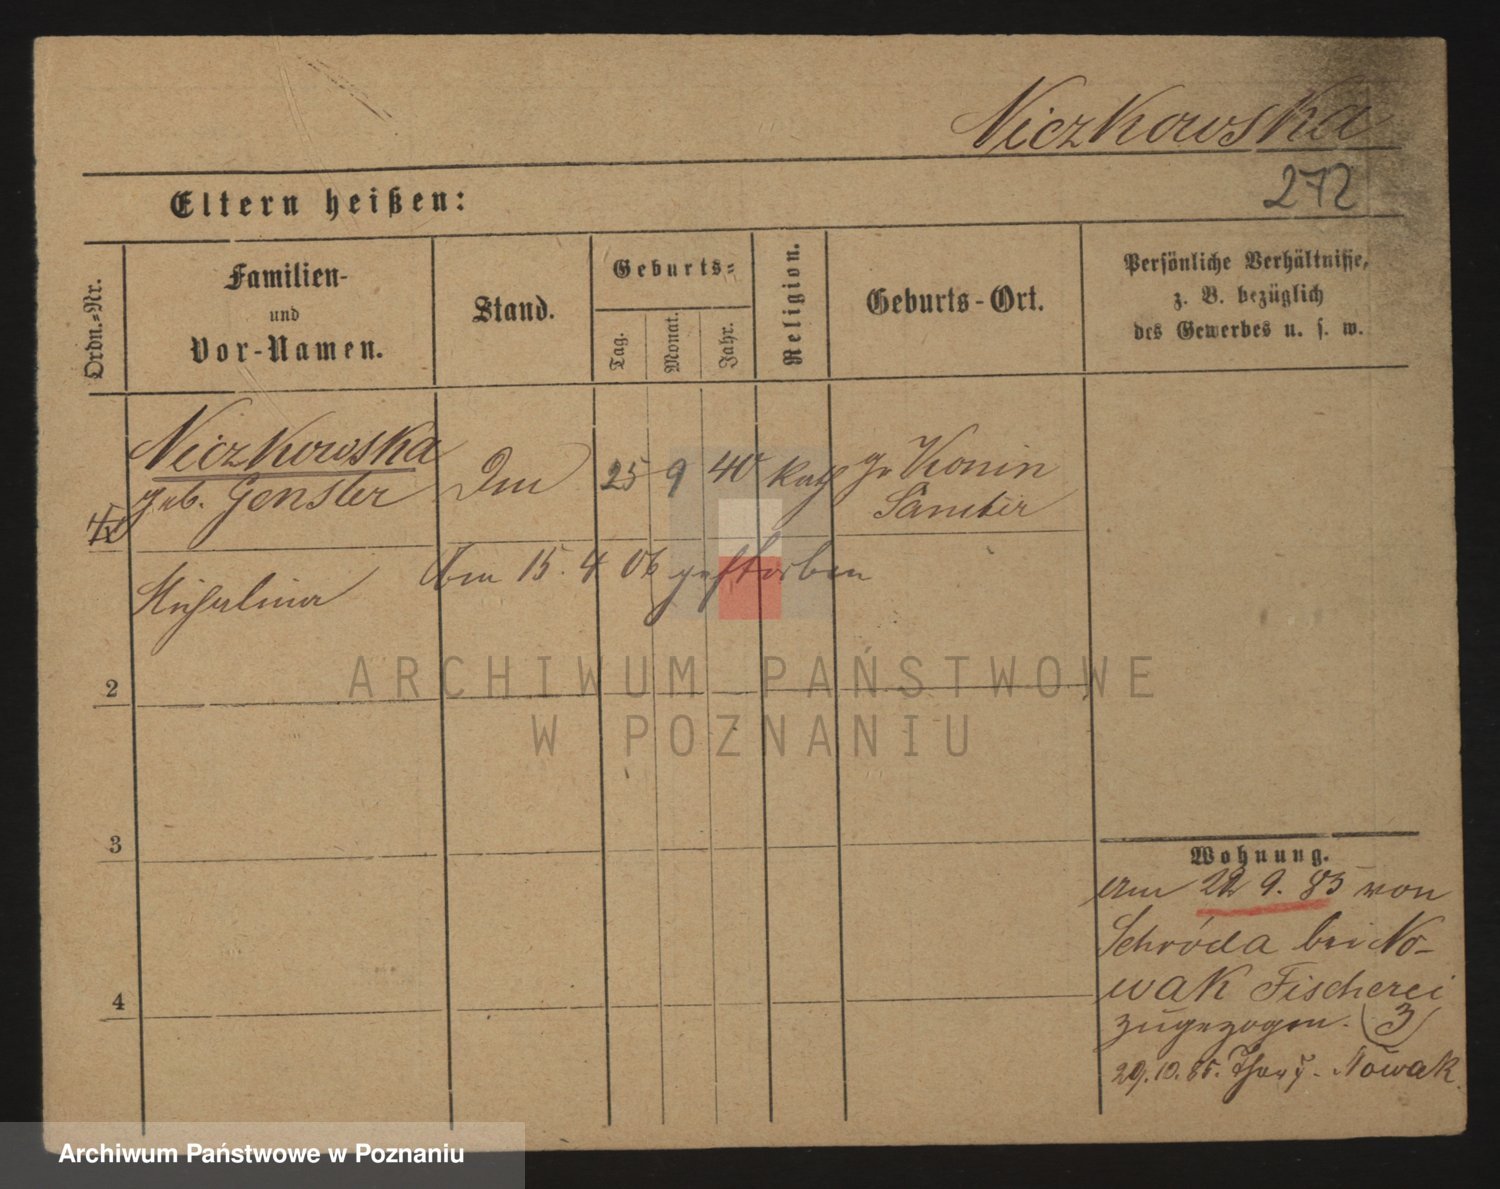 Niczkowska
272
Eltern heißen:
Ordn.-Nr.
Familien-
und
Vor-Namen.
Stand.
Geburts-
Tag.
Monat.
Jahr.
Religion.
Geburts-Ort.
Persönliche Verhältnisse,
z. B. bezüglich
des Gewerbes u. s. w.
Niczkowska
geb. Genster
25 9 40 kath Gr Konin
Samter
Michalina
Am 15. 4 06 gestorben
2
3
4
Wohnung.
am 22 9. 85 von
Schróda bei No-
wak Fischerei
zugezogen. (3)
29.10.85. Nowak
ARCHIWUM PAŃSTWOWE
W POZNANIU
Archiwum Państwowe w Poznaniu